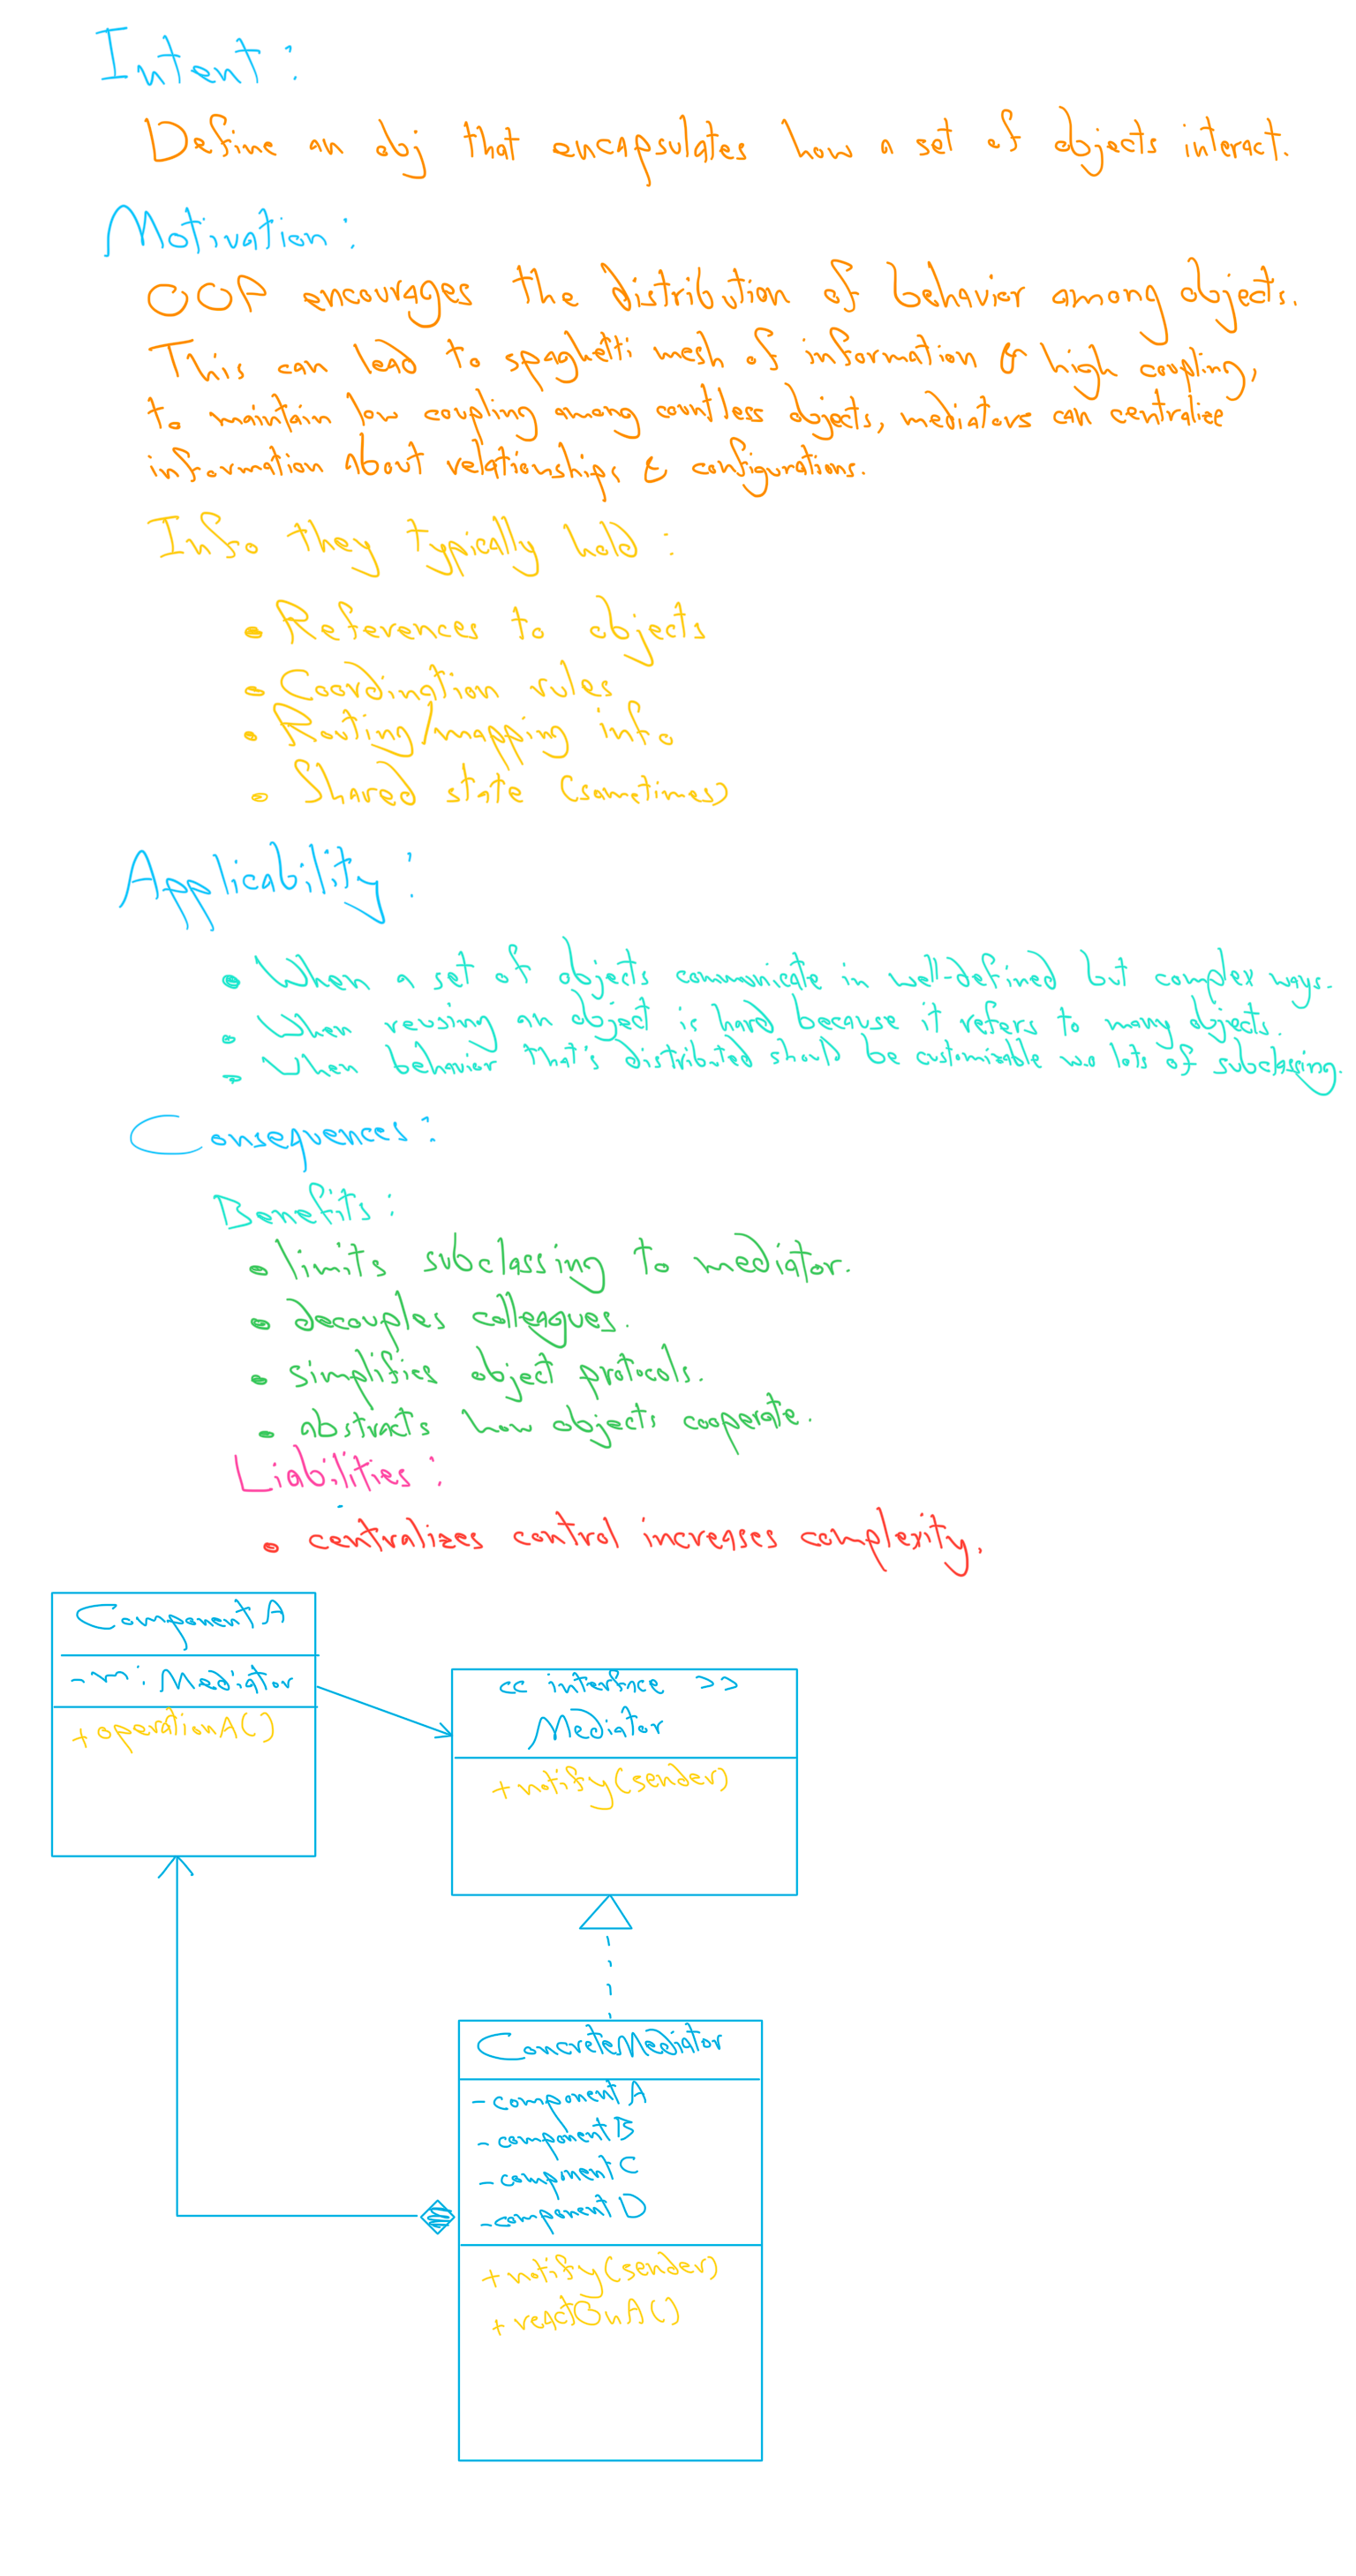 Intent:
Define an obj that encapsulates how a set of objects interact.
Motivation:
OOP encourages the distribution of behavior among objects.
This can lead to spaghetti mesh of information & high coupling,
to maintain low coupling among countless objects, mediators can centralize
information about relationships & configurations.
Info they typically hold:
• References to objects
• Coordination rules
• Routing/mapping info
• Shared state (sometimes)
Applicability:
• When a set of objects communicate in well-defined but complex ways.
• When reusing an object is hard because it refers to many objects.
• When behavior that's distributed should be customizable w.o lots of subclassing.
Consequences:
Benefits:
• limits subclassing to mediator.
• decouples colleagues.
• simplifies object protocols.
• abstracts how objects cooperate.
Liabilities:
• centralizes control increases complexity.
ComponentA
- m: Mediator
+ operationA()
<< interface >>
Mediator
+ notify(sender)
ConcreteMediator
- componentA
- componentB
- componentC
- componentD
+ notify(sender)
+ reactOnA()